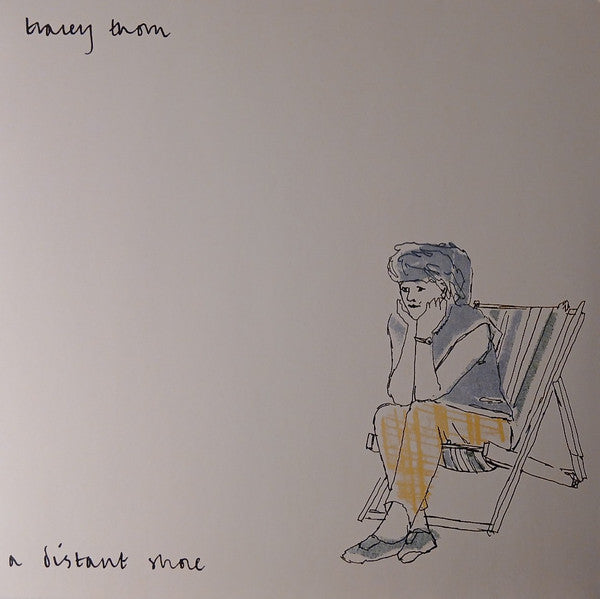 tracey thorn
a distant shore